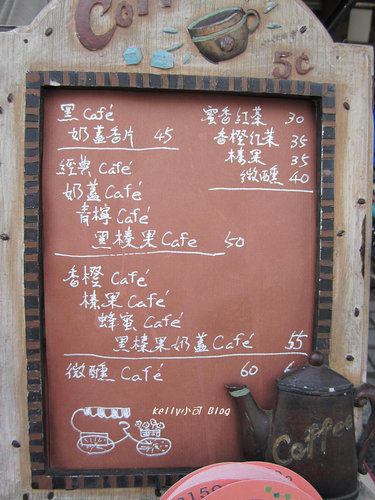 Coff
5¢
黑 Café
奶蓋香片 45
經典 Café
奶蓋 Café
青檸 Café
黑榛果 Cafe 50
香橙 Café
榛果 Café
蜂蜜 Café
黑榛果奶蓋 Café 55
微醺 Café 60
蜜香紅茶 30
香橙紅茶 35
榛果 35
微醺 40
kelly小可 Blog
Coffee